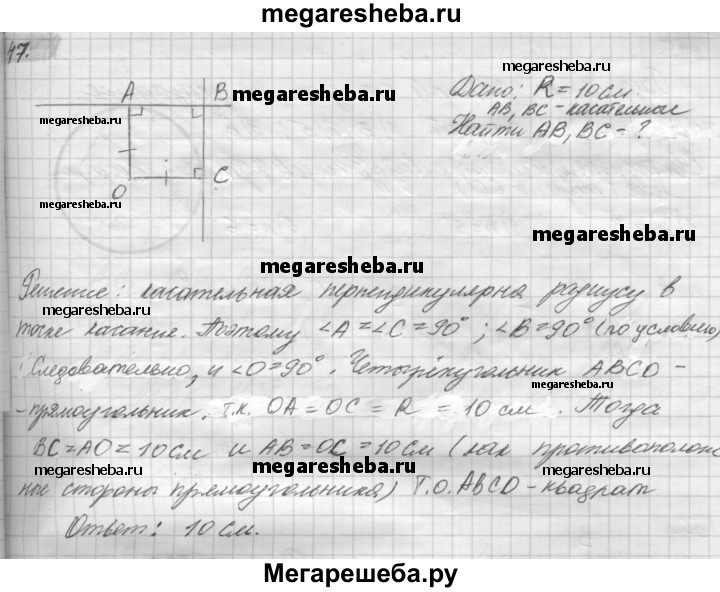 megaresheba.ru
47.
A B megaresheba.ru
megaresheba.ru
megaresheba.ru
Дано: R = 10 см.
AB, BC - касательные
megaresheba.ru
Найти AB, BC - ?
megaresheba.ru
O C
megaresheba.ru
megaresheba.ru
megaresheba.ru
Решение: касательная перпендикулярна радиусу в
megaresheba.ru
точке касание. Поэтому ∠A = ∠C = 90°; ∠B = 90° (по условию)
megaresheba.ru
Следовательно, и ∠O = 90°. Четырёхугольник ABCO -
megaresheba.ru
- прямоугольник. т.к. OA = OC = R = 10 см. Тогда
megaresheba.ru
BC = AO = 10 см и AB = OC = 10 см (как противсполож
megaresheba.ru
megaresheba.ru
megaresheba.ru
ные стороны прямоугольника) Т.О. ABCD - квадрат
Ответ: 10 см.
Мегарешеба.ру